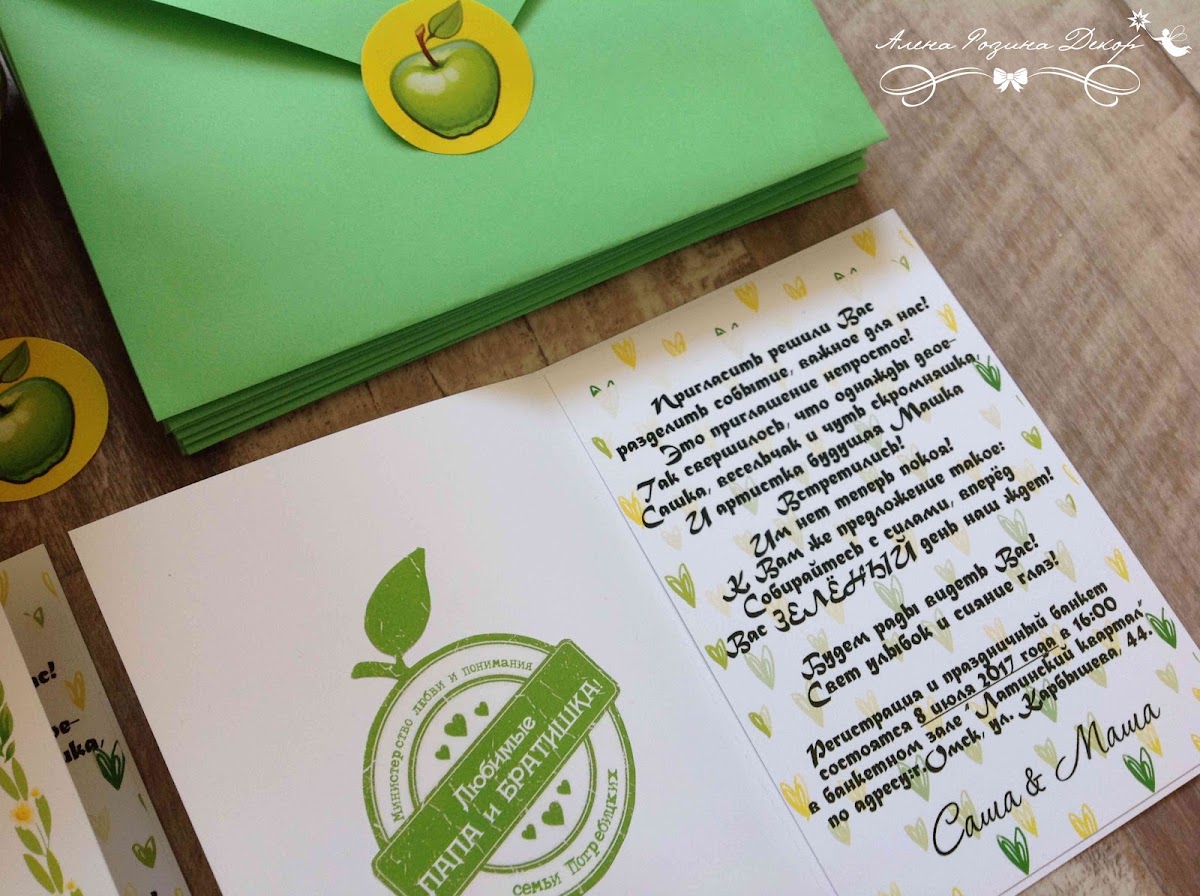 Алена Родина Декор
Пригласить решили Вас
разделить событие, важное для нас!
Это приглашение непростое!
Так свершилось, что однажды двое-
Сашка, весельчак и чуть скромняшка,
И артистка будущая Машка
Встретились!
Им нет теперь покоя!
К Вам же предложение такое:
Собирайтесь с силами, вперёд
Вас ЗЕЛЁНЫЙ день наш ждет!
Будем рады видеть Вас!
Свет улыбок и сияние глаз!
Регистрация и праздничный банкет
состоятся 8 июля 2017 года в 16:00
в банкетном зале "Латинский квартал"
по адресу:г.Омск, ул. Карбышева, 44.
Саша & Маша
Министерство любви и понимания
Любимые
ПАПА и БРАТИШКА!
семьи Погребицких
ас!
ое-
шка,